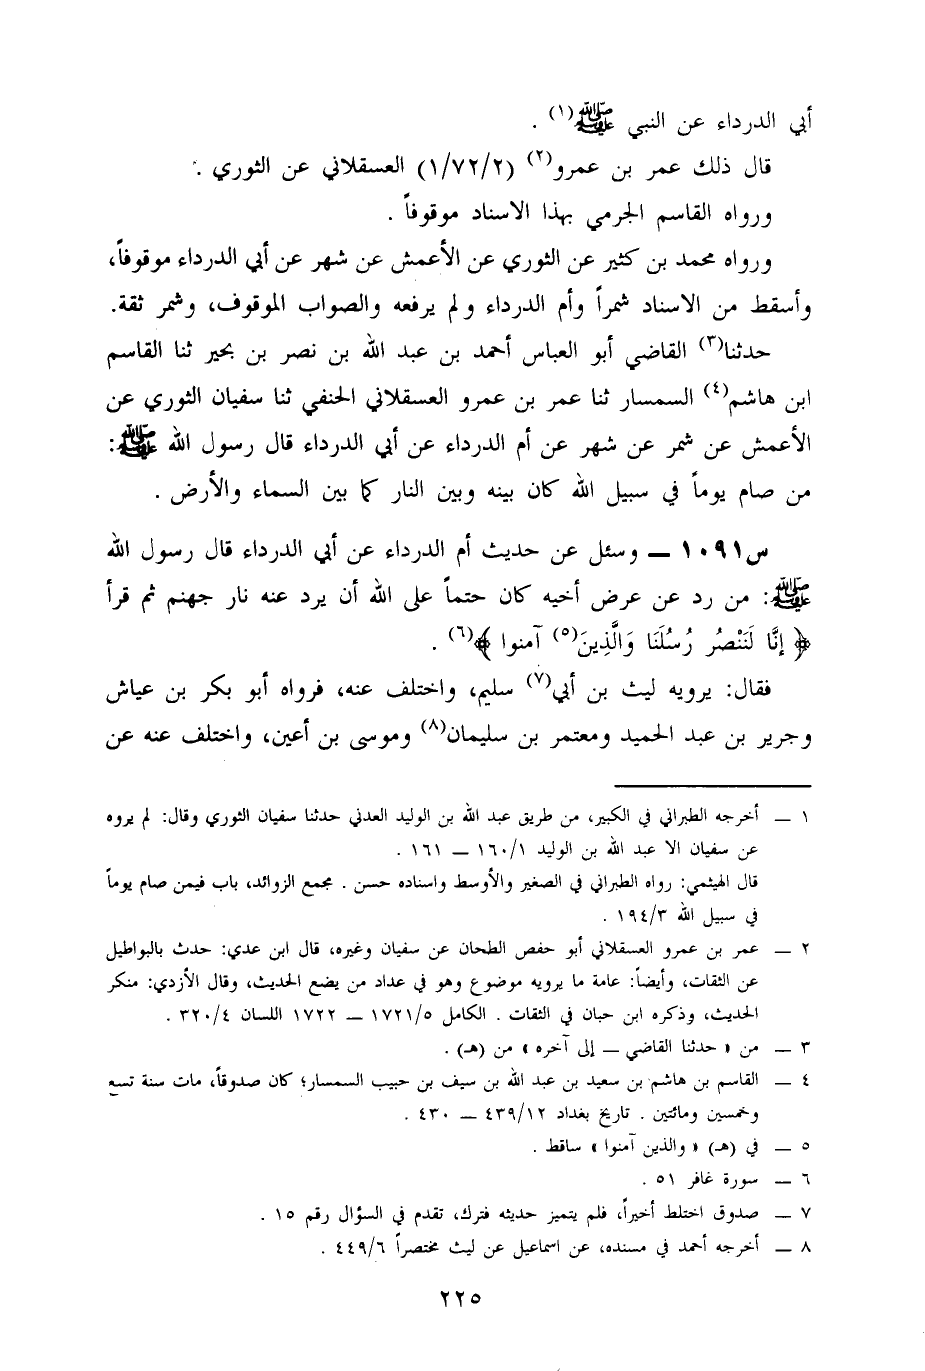 أبي الدرداء عن النبي ﷺ(١) .
قال ذلك عمر بن عمرو(٢) (١/٧٢/٢) العسقلاني عن الثوري .
ورواه القاسم الجرمي بهذا الاسناد موقوفاً .
ورواه محمد بن كثير عن الثوري عن الأعمش عن شهر عن أبي الدرداء موقوفاً،
وأسقط من الاسناد شمراً وأم الدرداء ولم يرفعه والصواب الموقوف، وشمر ثقة.
حدثنا(٣) القاضي أبو العباس أحمد بن عبد الله بن نصر بن بحير ثنا القاسم
ابن هاشم(٤) السمسار ثنا عمر بن عمرو العسقلاني الحنفي ثنا سفيان الثوري عن
الأعمش عن شمر عن شهر عن أم الدرداء عن أبي الدرداء قال رسول الله ﷺ:
من صام يوماً في سبيل الله كان بينه وبين النار كما بين السماء والأرض .
س١٠٩١ — وسئل عن حديث أم الدرداء عن أبي الدرداء قال رسول الله
ﷺ: من رد عن عرض أخيه كان حتماً على الله أن يرد عنه نار جهنم ثم قرأ
﴿ إنَّا لَنَنْصُر رُسُلَنَا وَالَّذِينَ(٥) آمنوا ﴾(٦) .
فقال: يرويه ليث بن أبي(٧) سليم، واختلف عنه، فرواه أبو بكر بن عياش
وجرير بن عبد الحميد ومعتمر بن سليمان(٨) وموسى بن أعين، واختلف عنه عن
١ — أخرجه الطبراني في الكبير، من طريق عبد الله بن الوليد العدني حدثنا سفيان الثوري وقال: لم يروه
عن سفيان الا عبد الله بن الوليد ١٦٠/١ — ١٦١ .
قال الهيثمي: رواه الطبراني في الصغير والأوسط واسناده حسن . مجمع الزوائد، باب فيمن صام يوماً
في سبيل الله ١٩٤/٣ .
٢ — عمر بن عمرو العسقلاني أبو حفص الطحان عن سفيان وغيره، قال ابن عدي: حدث بالبواطيل
عن الثقات، وأيضاً: عامة ما يرويه موضوع وهو في عداد من يضع الحديث، وقال الأزدي: منكر
الحديث، وذكره ابن حبان في الثقات . الكامل ١٧٢١/٥ — ١٧٢٢ اللسان ٣٢٠/٤ .
٣ — من « حدثنا القاضي — إلى آخره » من (هـ) .
٤ — القاسم بن هاشم بن سعيد بن عبد الله بن سيف بن حبيب السمسار؛ كان صدوقاً، مات سنة تسع
وخمسين ومائتين . تاريخ بغداد ٤٣٩/١٢ — ٤٣٠ .
٥ — في (هـ) « والذين آمنوا » ساقط .
٦ — سورة غافر ٥١ .
٧ — صدوق اختلط أخيراً، فلم يتميز حديثه فترك، تقدم في السؤال رقم ١٥ .
٨ — أخرجه أحمد في مسنده، عن اسماعيل عن ليث مختصراً ٤٤٩/٦ .
٢٢٥